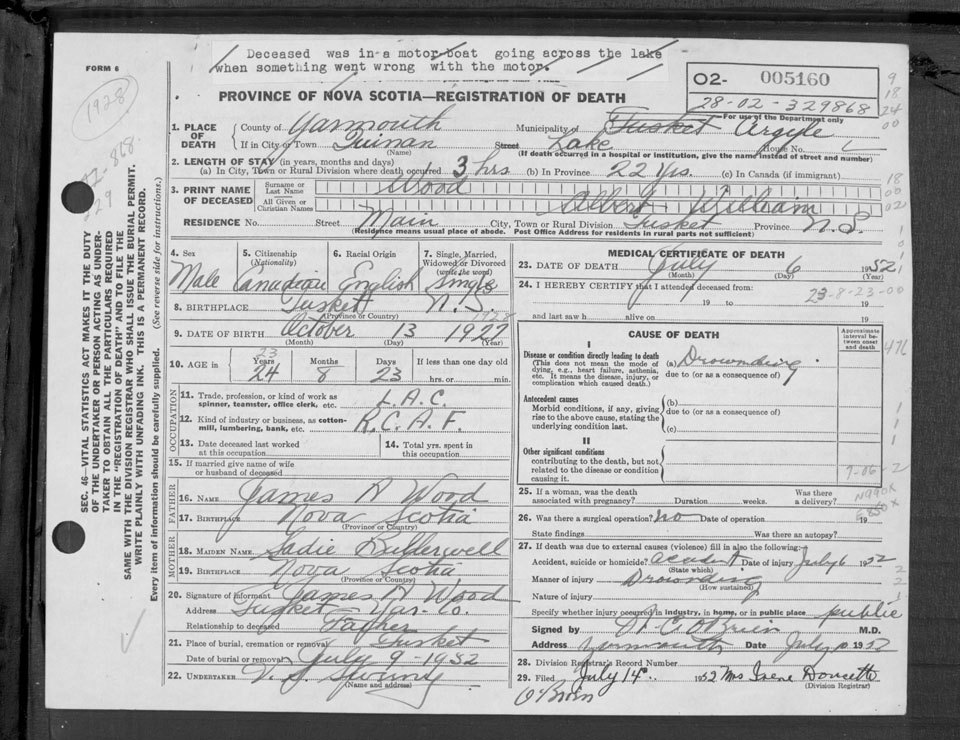 Deceased was in a motor boat going across the lake
when something went wrong with the motor.
FORM 6
1928
O2- 005160
28-02-329868
For use of the Department only
PROVINCE OF NOVA SCOTIA—REGISTRATION OF DEATH
1. PLACE OF DEATH
County of Yarmouth Municipality of Tusket Argyle
If in City or Town Quinan Street Lake House No.
(Name) (If death occurred in a hospital or institution, give the name instead of street and number)
2. LENGTH OF STAY (in years, months and days)
(a) In City, Town or Rural Division where death occurred 3 hrs (b) In Province 22 Yrs. (c) In Canada (if immigrant)
3. PRINT NAME OF DECEASED
Surname or Last Name Wood
All Given or Christian Names Albert William
RESIDENCE No. Street Main City, Town or Rural Division Tusket Province N.S.
(Residence means usual place of abode. Post Office Address for residents in rural parts not sufficient)
4. Sex Male
5. Citizenship (Nationality) Canadian
6. Racial Origin English
7. Single, Married, Widowed or Divorced (write the word) Single
8. BIRTHPLACE Tusket N.S.
(Province or Country)
1928
9. DATE OF BIRTH October 13 1927
(Month) (Day) (Year)
23
10. AGE in Years 24 Months 8 Days 23 If less than one day old
hrs. or min.
OCCUPATION
11. Trade, profession, or kind of work as spinner, teamster, office clerk, etc. L.A.C.
12. Kind of industry or business, as cotton-mill, lumbering, bank, etc. R.C.A.F.
13. Date deceased last worked at this occupation
14. Total yrs. spent in this occupation
15. If married give name of wife or husband of deceased
FATHER
16. NAME James H Wood
17. BIRTHPLACE Nova Scotia
(Province or Country)
MOTHER
18. MAIDEN NAME Sadie
19. BIRTHPLACE Nova Scotia
(Province or Country)
20. Signature of informant James H Wood
Address Tusket Yar-Co.
Relationship to deceased Father
21. Place of burial, cremation or removal Tusket
Date of burial or removal July 9-1952
22. UNDERTAKER V. S. Sweeny
(Name and address)
MEDICAL CERTIFICATE OF DEATH
23. DATE OF DEATH July 6 1952
(Month) (Day) (Year)
24. I HEREBY CERTIFY that I attended deceased from:
23-8-23-00
19 to 19
and last saw h alive on 19
CAUSE OF DEATH
Approximate interval between onset and death
I
Disease or condition directly leading to death
(This does not mean the mode of dying, e.g., heart failure, asthenia, etc. It means the disease, injury, or complication which caused death.)
(a) Drownding
due to (or as a consequence of)
Antecedent causes
Morbid conditions, if any, giving rise to the above cause, stating the underlying condition last.
(b)
due to (or as a consequence of)
(c)
II
Other significant conditions
contributing to the death, but not related to the disease or condition causing it.
25. If a woman, was the death associated with pregnancy? Duration weeks. Was there a delivery?
26. Was there a surgical operation? no Date of operation 19
State findings Was there an autopsy?
27. If death was due to external causes (violence) fill in also the following:
Accident, suicide or homicide? accident Date of injury July 6 1952
(State which)
Manner of injury Drownding
(How sustained)
Nature of injury
Specify whether injury occurred in industry, in home, or in public place public
Signed by O'Brien M.D.
Address Yarmouth Date July 1952
28. Division Registrar's Record Number
29. Filed July 14 1952 Mrs Irene Doucette
(Division Registrar)
O'Brien
SEC. 46—VITAL STATISTICS ACT MAKES IT THE DUTY
OF THE UNDERTAKER OR PERSON ACTING AS UNDER-
TAKER TO OBTAIN ALL THE PARTICULARS REQUIRED
IN THE "REGISTRATION OF DEATH" AND TO FILE THE
SAME WITH THE DIVISION REGISTRAR WHO SHALL ISSUE THE BURIAL PERMIT.
WRITE PLAINLY WITH UNFADING INK. THIS IS A PERMANENT RECORD.
Every item of information should be carefully supplied. (See reverse side for instructions.)